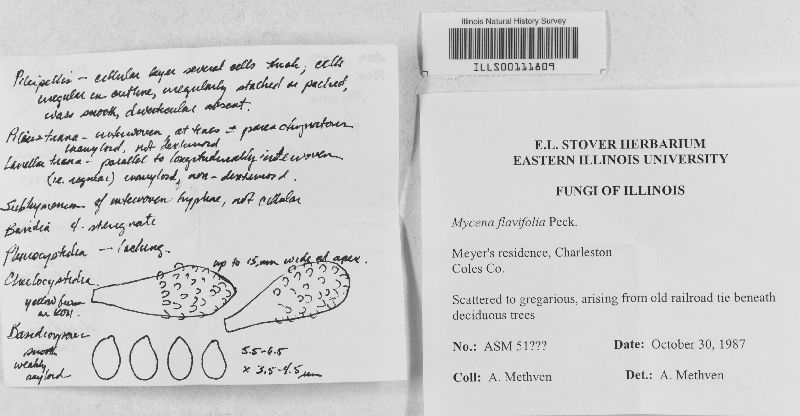 Pileipellis - cellular layer several cells thick; cells
irregular in outline, irregularly stacked or packed,
walls smooth, diverticulae absent.
Pileus trama - interwoven, at times ± parenchymatous
inamyloid, not dextrinoid
Lamellar trama - parallel to longitudinally interwoven
(i.e. regular) inamyloid, non-dextrinoid.
Subhymenium of interwoven hyphae, not cellular
Basidia 4-sterigmate
Pleurocystidia - lacking.
up to 15 µm wide at apex.
Cheilocystidia
yellow brown
in KOH.
Basidiospores
smooth
weakly
amyloid
5.5-6.5
x 3.5-4.5 µm
Illinois Natural History Survey
ILLS00111809
E.L. STOVER HERBARIUM
EASTERN ILLINOIS UNIVERSITY
FUNGI OF ILLINOIS
Mycena flavifolia Peck.
Meyer's residence, Charleston
Coles Co.
Scattered to gregarious, arising from old railroad tie beneath
deciduous trees
No.: ASM 51??? Date: October 30, 1987
Coll: A. Methven Det.: A. Methven